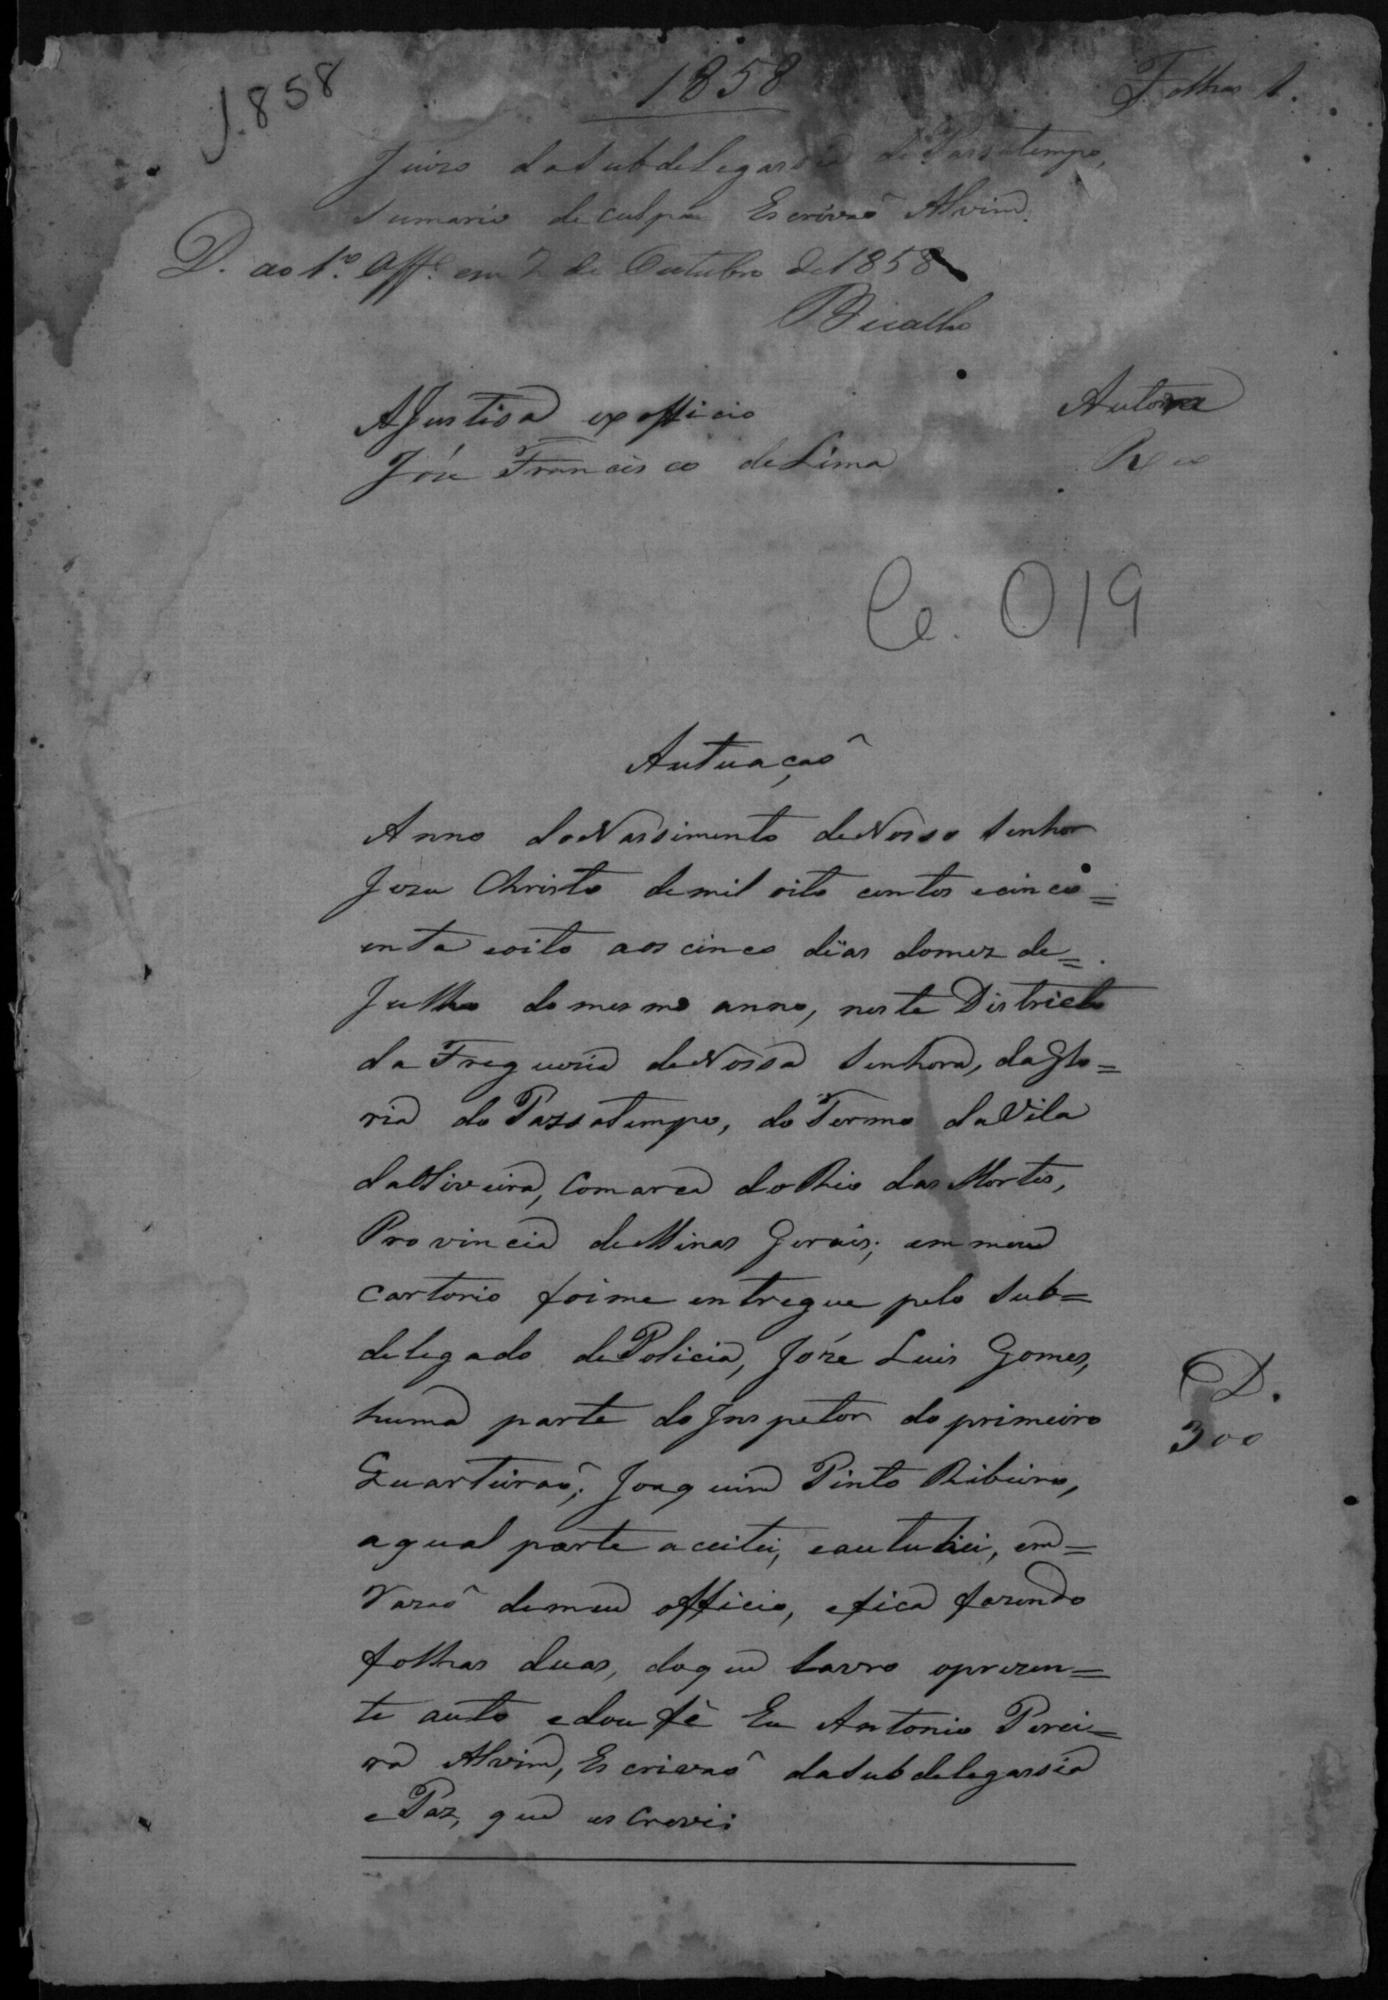 1858
1858
Folhas 1.
Juizo da Subdelegassia de Passatempo,
Sumario de culpa Escrivaõ Alvim.
D. ao 1.º Off.º em 2 de Outubro de 1858
Bicalho
AJustisa ex officio Autora
Jóse Francisco deLima Reo
Ce. 019
Autuaçaõ
Anno doNassimento deNosso Senhor
Jezu Christo demil oito centos ecinco=
enta eoito aos cinco dias domez de=
Julho do mesmo anno, neste Districto
da Freguezia deNossa Senhora, daGlo=
ria do Passatempo, do Termo daVila
daOliveira, Comarca doRio das Mortes,
Provincia deMinas Gerais; em meu
cartorio foime entregue pelo Sub=
delegado dePolicia, Józe Luis Gomes,
huma parte do Inspetor do primeiro
Quarteiraõ, Joaquim Pinto Ribeiro,
aqual parte aceitei, eautuhei, em=
Razaõ demeu officio, efica fazendo
folhas duas, doque Lavro oprezen=
te auto edou fé Eu Antonio Perei=
ra Alvim, Escrivaõ daSubdelegassia
ePaz, que escrevi:
D.
300